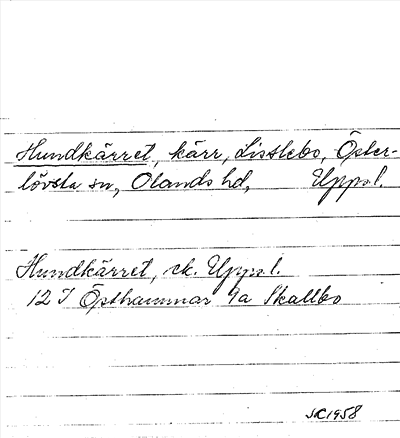 Hundkärret, kärr, Lisslebo, Öster-
lövsta sn, Olands hd, Uppsl.
Hundkärret, ek. Uppsl.
12 I Östhammar 9a Skallbo
SK 1958